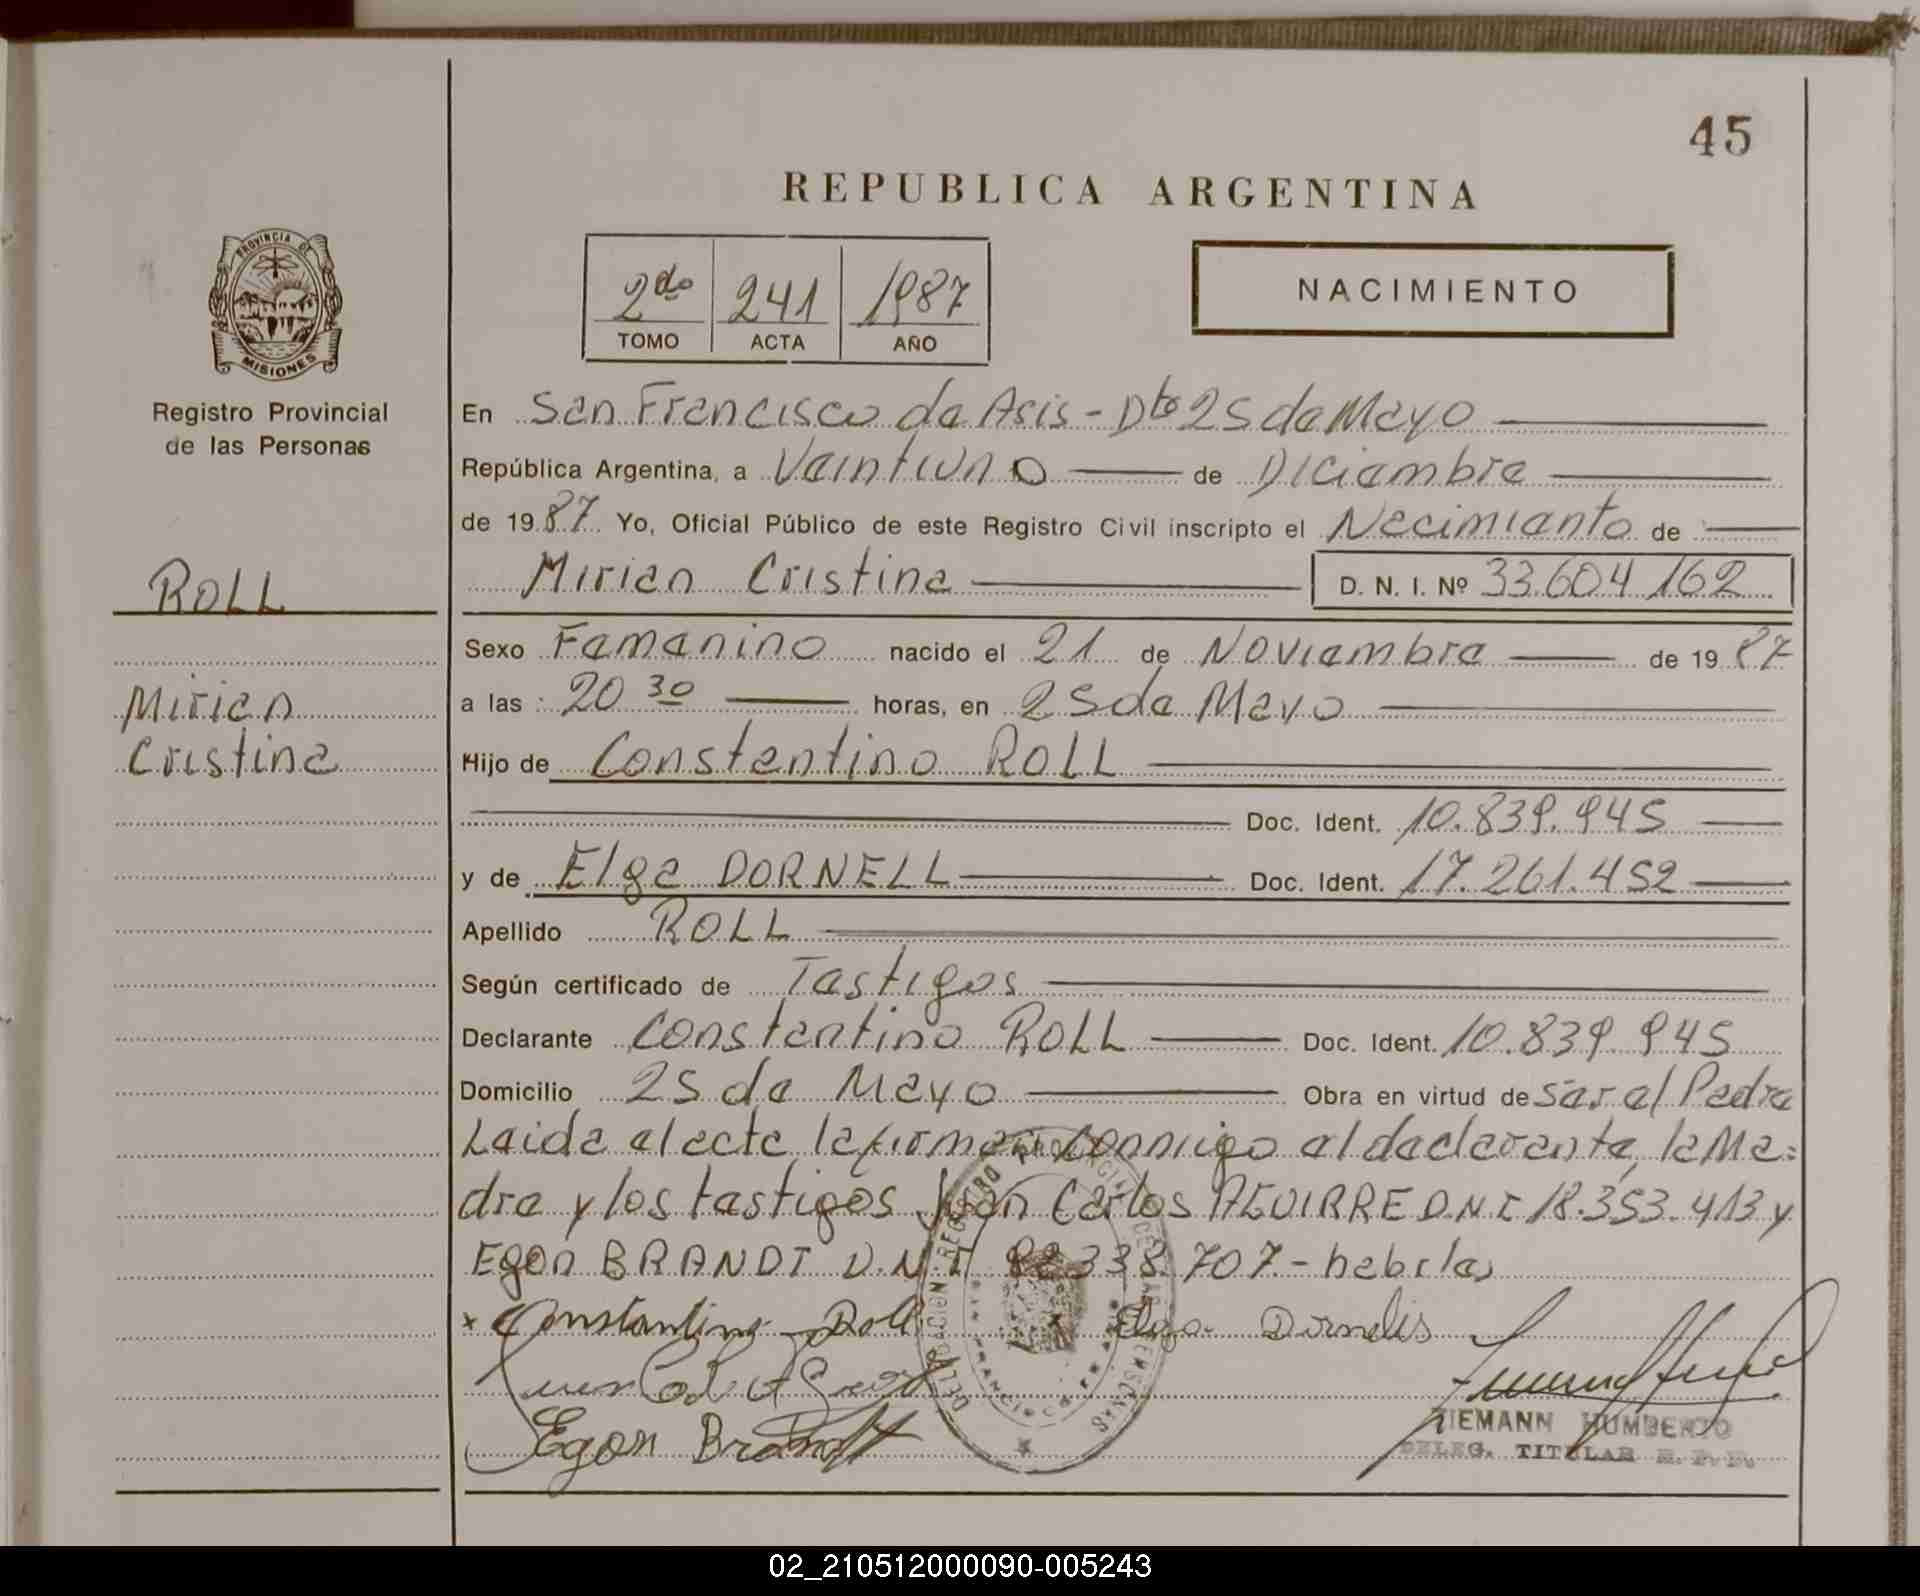 45
REPUBLICA ARGENTINA
PROVINCIA DE
MISIONES
Registro Provincial
de las Personas
2do 241 1987
TOMO ACTA AÑO
NACIMIENTO
En San Francisco de Asis - Dto 25 de Mayo
República Argentina, a Veintiuno de Diciembre
de 1987 Yo, Oficial Público de este Registro Civil inscripto el Necimiento de
ROLL
Mirian Cristina D. N. I. Nº 33.604.162
Sexo Femenino nacido el 21 de Noviembre de 1987
Mirian
a las 20 30 horas, en 25 de Mayo
Cristina
Hijo de Constantino ROLL
Doc. Ident. 10.839.945
y de Elga DORNELL Doc. Ident. 17.261.452
Apellido ROLL
Según certificado de Testigos
Declarante Constantino ROLL Doc. Ident. 10.839.945
Domicilio 25 de Mayo Obra en virtud de ser el Padre
Leida el acta, la firman conmigo el declarante, la Ma=
dre y los testigos Juan Carlos AGUIRRE D.N.I 18.353.413 y
Egon BRANDT D.N.I 338.707.-
x Constantino Roll x Elga Dornelis
Egon Brandt
ZIEMANN HUMBERTO
DELEG. TITULAR R. P. P.
02_210512000090-005243